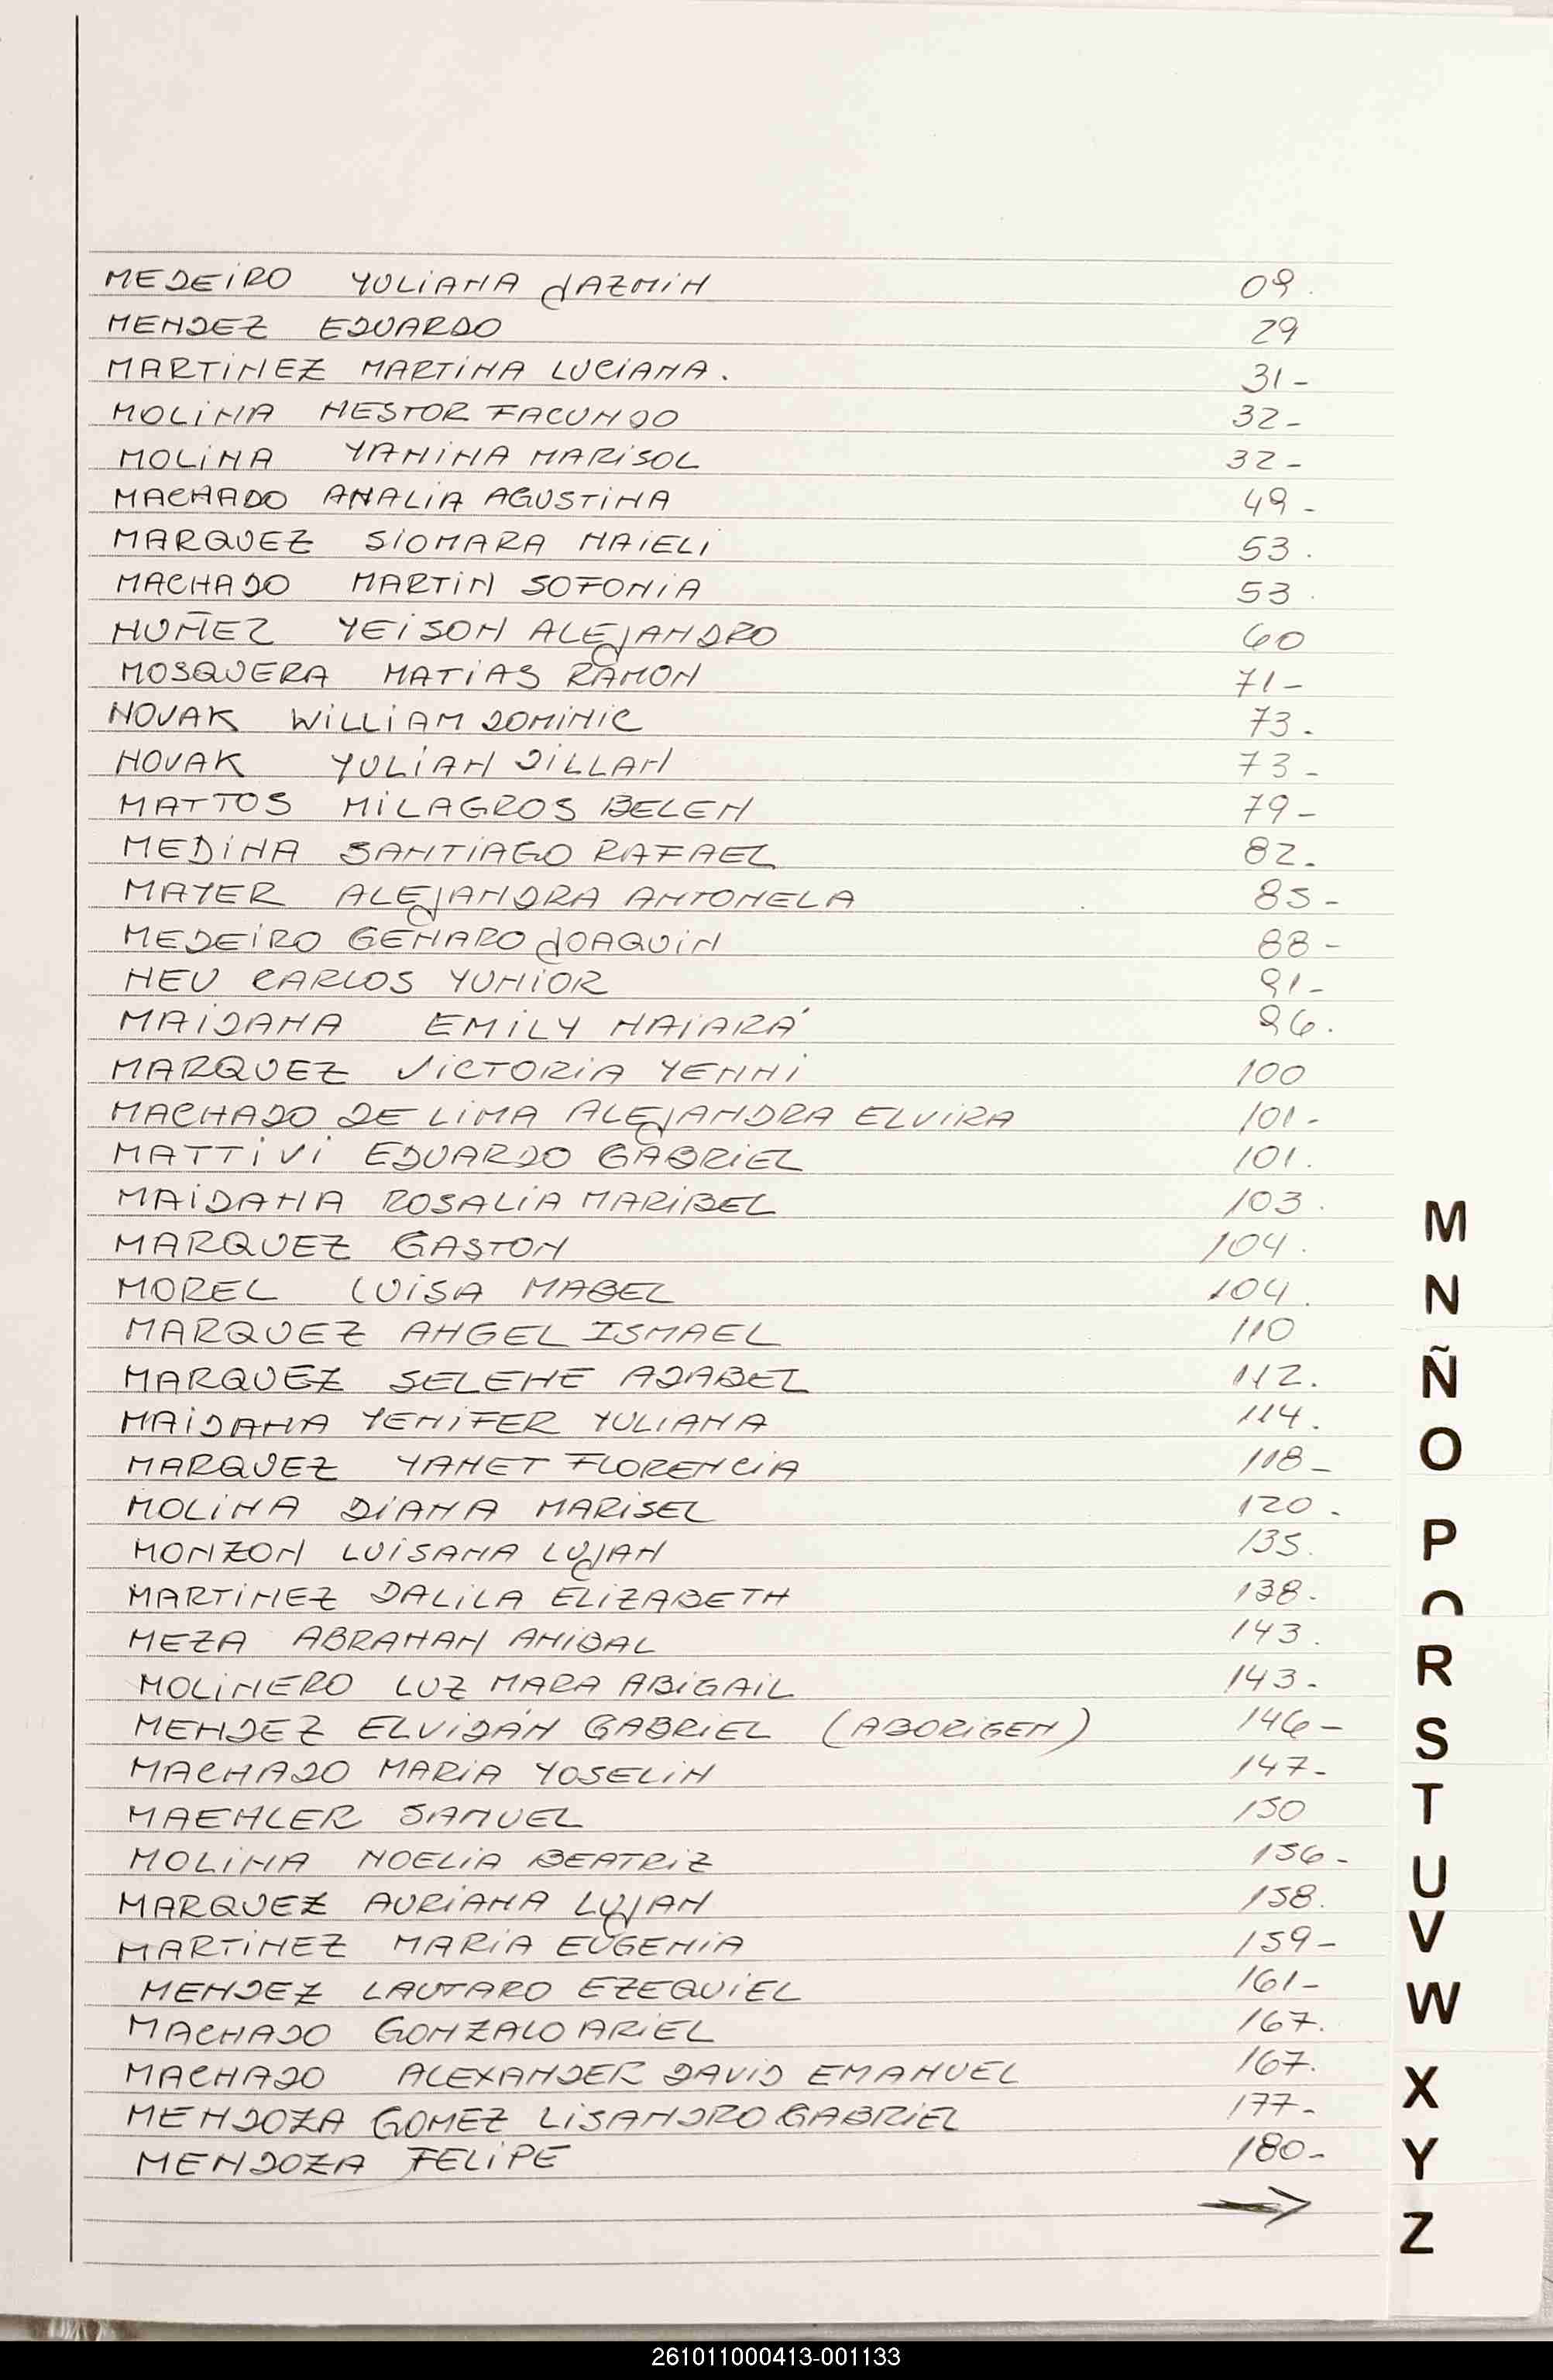 MEDEIRO YULIANA JAZMIN 09.
MENDEZ EDUARDO 29
MARTINEZ MARTINA LUCIANA. 31-
MOLINA NESTOR FACUNDO 32-
MOLINA YANINA MARISOL 32-
MACHADO ANALIA AGUSTINA 49-
MARQUEZ SIOMARA NAIELI 53.
MACHADO MARTIN SOFONIA 53.
NUÑEZ YEISON ALEJANDRO 60
MOSQUERA MATIAS RAMON 71-
NOVAK WILLIAM DOMINIC 73.
NOVAK YULIAN DILLAN 73-
MATTOS MILAGROS BELEN 79-
MEDINA SANTIAGO RAFAEL 82.
MAYER ALEJANDRA ANTONELA 85-
MEDEIRO GENARO JOAQUIN 88-
NEU CARLOS YUNIOR 91-
MAIDANA EMILY NAIARÁ 96.
MARQUEZ VICTORIA YENNI 100
MACHADO DE LIMA ALEJANDRA ELVIRA 101-
MATTIVI EDUARDO GABRIEL 101.
MAIDANA ROSALIA MARIBEL 103.
MARQUEZ GASTON 104.
MOREL LUISA MABEL 104.
MARQUEZ ANGEL ISMAEL 110
MARQUEZ SELENE ADABEL 112.
MAIDANA YENIFER YULIANA 114.
MARQUEZ YANET FLORENCIA 118-
MOLINA DIANA MARISEL 120.
MONZON LUISANA LUJAN 135.
MARTINEZ DALILA ELIZABETH 138.
MEZA ABRAHAN ANIBAL 143.
MOLINERO LUZ MARA ABIGAIL 143.
MENDEZ ELVIDÁN GABRIEL (ABORIGEN) 146-
MACHADO MARIA YOSELIN 147-
MAEHLER SAMUEL 150
MOLINA NOELIA BEATRIZ 156-
MARQUEZ AURIANA LUJAN 158.
MARTINEZ MARIA EUGENIA 159-
MENDEZ LAUTARO EZEQUIEL 161-
MACHADO GONZALO ARIEL 167.
MACHADO ALEXANDER DAVID EMANUEL 167.
MENDOZA GOMEZ LISANDRO GABRIEL 177-
MENDOZA FELIPE 180-
→
M
N
Ñ
O
P
R
S
T
U
V
W
X
Y
Z
261011000413-001133